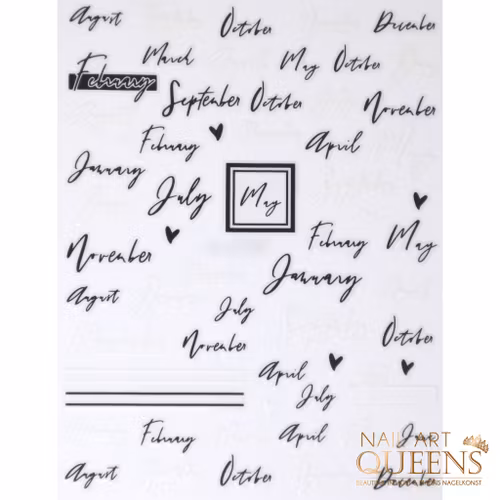 August October December
March May October
February
September October November
February April
January
July May
February May
November
January
August
July
November October
April
July
February April
NAIL ART
QUEENS
August October December